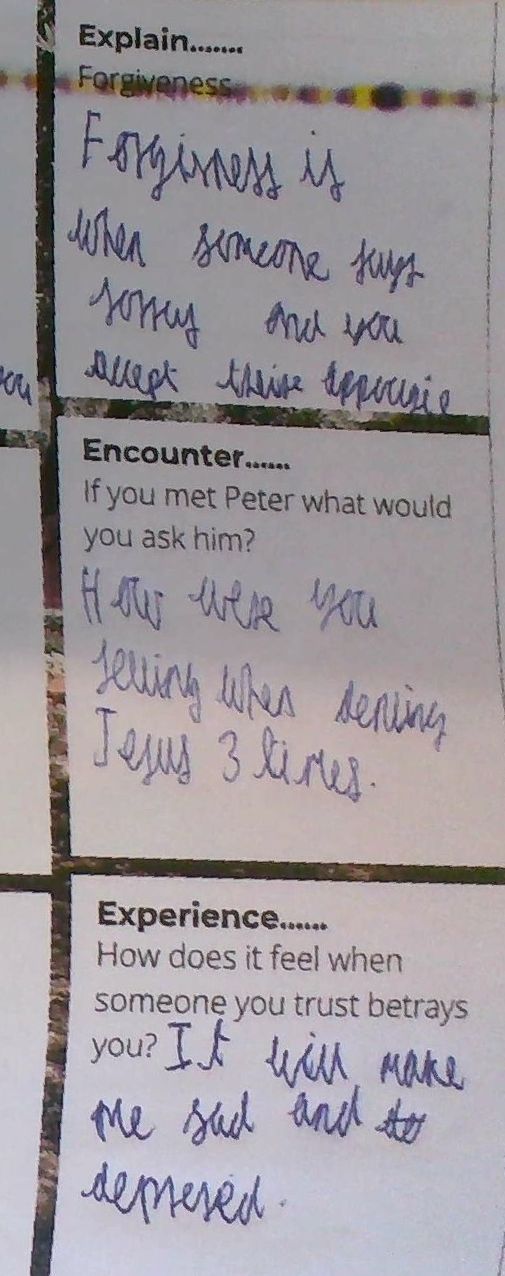 Explain.......
Forgiveness
Forgivness is
when someone says
sorry and you
you
accept theire appougie
Encounter......
If you met Peter what would
you ask him?
How were you
felling when dening
Jesus 3 times.
Experience......
How does it feel when
someone you trust betrays
you? It will make
me sad and
depresed.